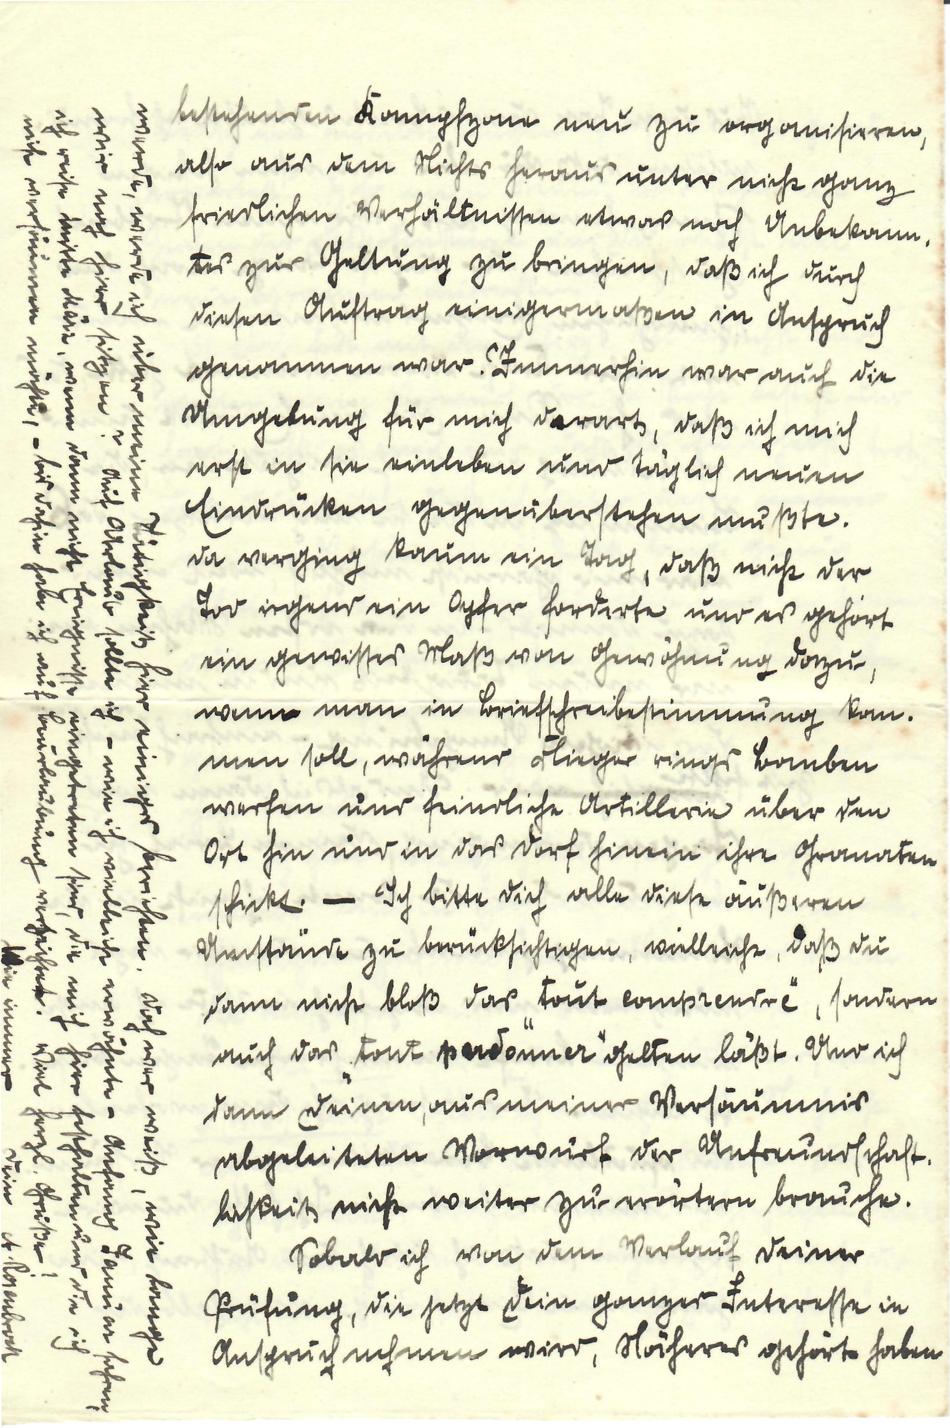 bestehenden Kampfzone neu zu organisieren,
also aus dem Nichts heraus unter nicht ganz
friedlichen Verhältnissen etwas noch Unbekann-
tes zur Geltung zu bringen, daß ich durch
diesen Auftrag einigermaßen in Anspruch
genommen war. Immerhin war auch die
Umgebung für mich derart, daß ich mich
erst in sie einleben und täglich neuen
Eindrücken gegenüberstehen mußte.
da verging kaum ein Tag, daß nicht der
Tod irgend ein Opfer forderte und es gehört
ein gewisses Maß von Gewöhnung dazu,
wenn man in Briefschreibestimmung kom-
men soll, während Flieger rings Bomben
werfen und feindliche Artillerie über den
Ort hin und in das Dorf hinein ihre Granaten
schickt. — Ich bitte dich alle diese äußeren
Umstände zu berücksichtigen, vielleicht, daß du
dann nicht bloß das "tout comprendre", sondern
auch das "tout pardonner" gelten läßt. Und ich
dann Deinen, aus meiner Versäumnis
abgeleiteten Vorwurf der Unfreundschaft-
lichkeit nicht weiter zu erörtern brauche.
Sobald ich von dem Verlauf Deiner
Prüfung, die jetzt Dein ganzes Interesse in
Anspruch nehmen wird, Näheres gehört haben
werde, werde ich über meine Tätigkeit hier einiges berichten. Doch wer weiß, wie lange
wir noch hier sitzen? Auf Urlaub sollte ich – wie ich vielleicht erwähnte – Anfang Januar fahren;
ich reise bitte wenn dann nicht Ereignisse eingetreten sind, die mich hier festhalten und die ich
nicht versäumen möchte, – bis dahin habe ich auf Beurlaubung verzichtet. Viel herzl. Grüße!
Wie immer Dein A. Rosenbrock